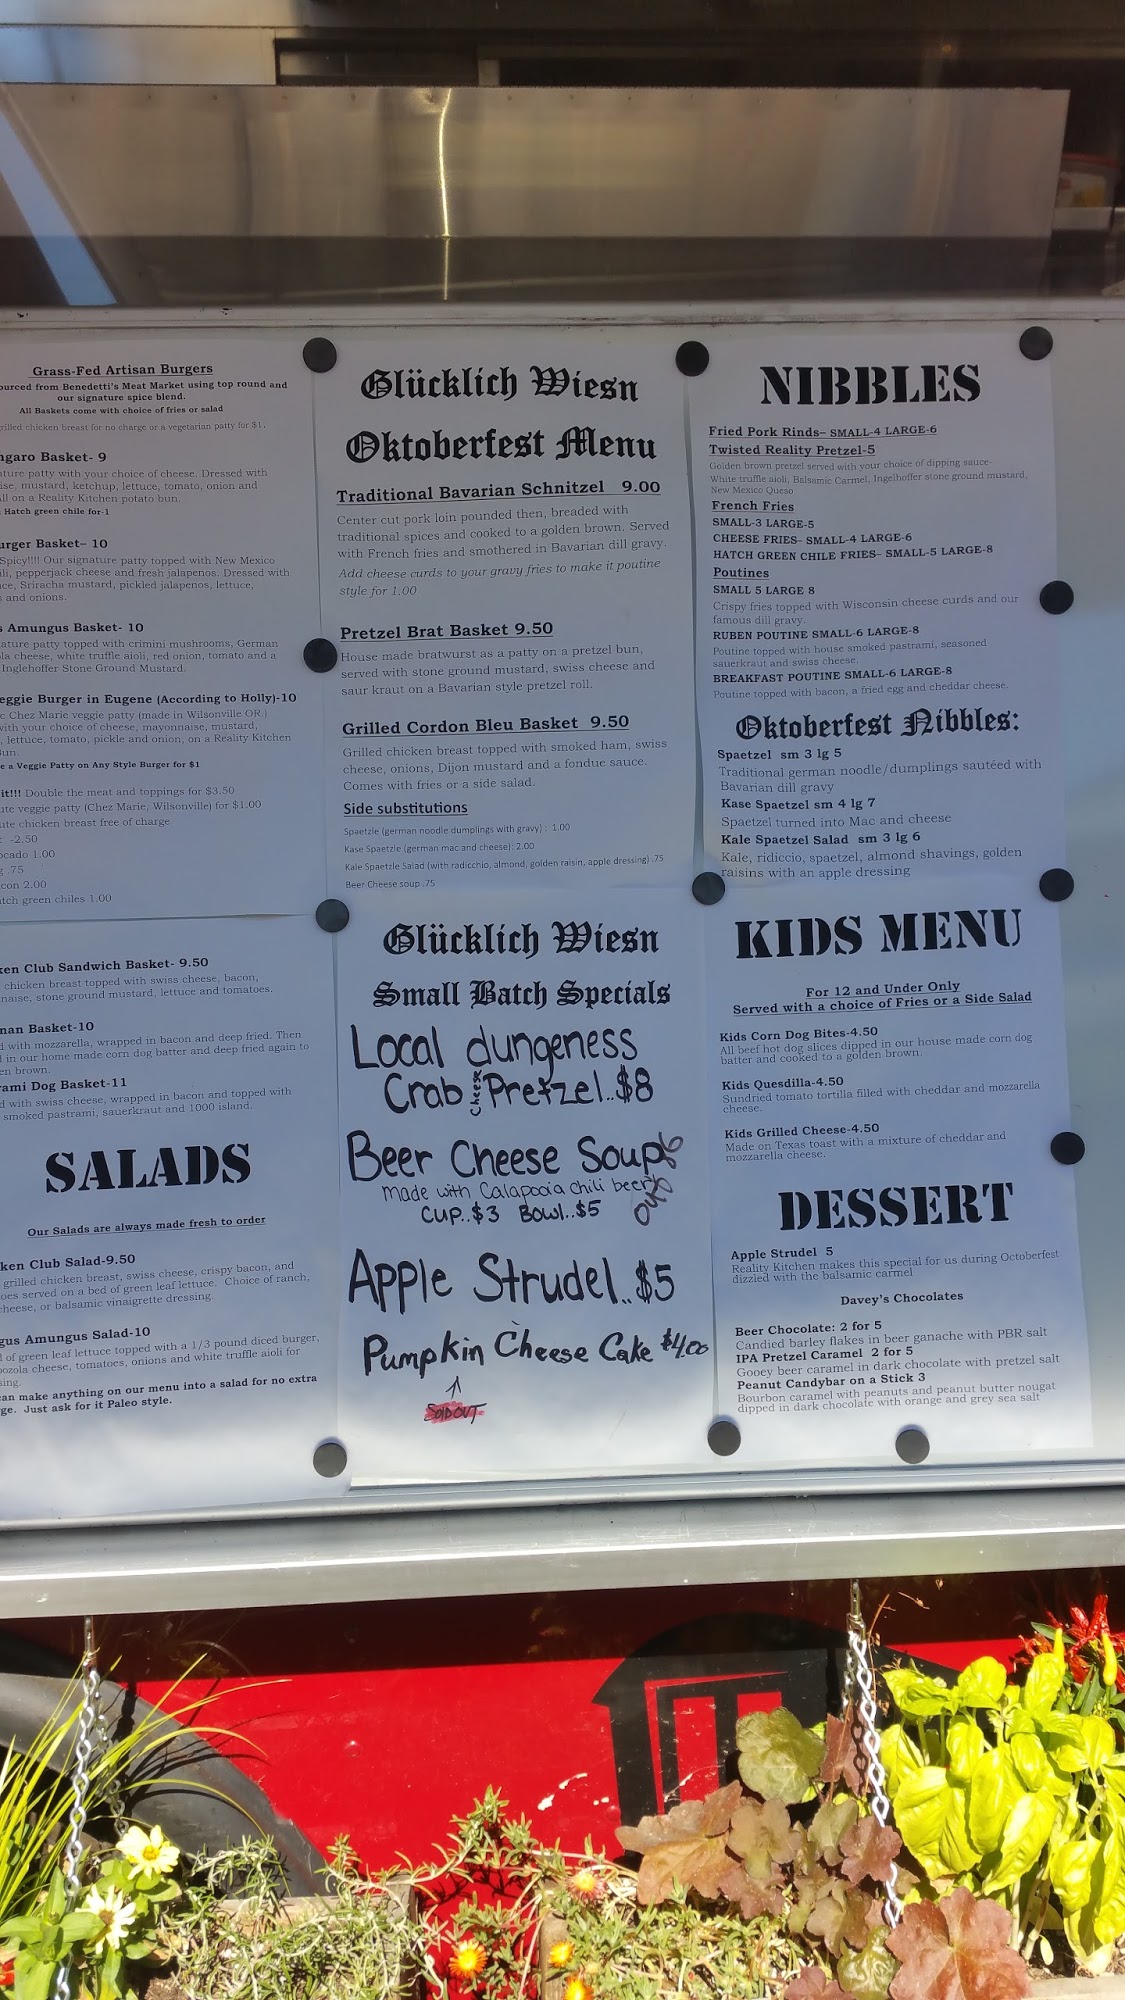 Grass-Fed Artisan Burgers
ourced from Benedetti's Meat Market using top round and
our signature spice blend.
All Baskets come with choice of fries or salad
grilled chicken breast for no charge or a vegetarian patty for $1.
ngaro Basket- 9
ature patty with your choice of cheese. Dressed with
ise, mustard, ketchup, lettuce, tomato, onion and
ll on a Reality Kitchen potato bun.
Hatch green chile for-1
urger Basket- 10
Spicy!!!! Our signature patty topped with New Mexico
ili, pepperjack cheese and fresh jalapenos. Dressed with
ce, Sriracha mustard, pickled jalapenos, lettuce,
s and onions.
s Amungus Basket- 10
ature patty topped with crimini mushrooms, German
ola cheese, white truffle aioli, red onion, tomato and a
Inglehoffer Stone Ground Mustard.
eggie Burger in Eugene (According to Holly)-10
c Chez Marie veggie patty (made in Wilsonville OR.)
with your choice of cheese, mayonnaise, mustard,
, lettuce, tomato, pickle and onion, on a Reality Kitchen
Bun.
e a Veggie Patty on Any Style Burger for $1
it!!! Double the meat and toppings for $3.50
ute veggie patty (Chez Marie, Wilsonville) for $1.00
ute chicken breast free of charge
: -2.50
ocado 1.00
g .75
con 2.00
atch green chiles 1.00
ken Club Sandwich Basket- 9.50
chicken breast topped with swiss cheese, bacon,
naise, stone ground mustard, lettuce and tomatoes.
nan Basket-10
d with mozzarella, wrapped in bacon and deep fried. Then
d in our home made corn dog batter and deep fried again to
en brown.
rami Dog Basket-11
d with swiss cheese, wrapped in bacon and topped with
smoked pastrami, sauerkraut and 1000 island.
SALADS
Our Salads are always made fresh to order
ken Club Salad-9.50
grilled chicken breast, swiss cheese, crispy bacon, and
oes served on a bed of green leaf lettuce. Choice of ranch,
cheese, or balsamic vinaigrette dressing.
gus Amungus Salad-10
d of green leaf lettuce topped with a 1/3 pound diced burger,
ozola cheese, tomatoes, onions and white truffle aioli for
sing.
can make anything on our menu into a salad for no extra
ge. Just ask for it Paleo style.
Glücklich Wiesn
Oktoberfest Menu
Traditional Bavarian Schnitzel 9.00
Center cut pork loin pounded then, breaded with
traditional spices and cooked to a golden brown. Served
with French fries and smothered in Bavarian dill gravy.
Add cheese curds to your gravy fries to make it poutine
style for 1.00
Pretzel Brat Basket 9.50
House made bratwurst as a patty on a pretzel bun,
served with stone ground mustard, swiss cheese and
saur kraut on a Bavarian style pretzel roll.
Grilled Cordon Bleu Basket 9.50
Grilled chicken breast topped with smoked ham, swiss
cheese, onions, Dijon mustard and a fondue sauce.
Comes with fries or a side salad.
Side substitutions
Spaetzle (german noodle dumplings with gravy) : 1.00
Kase Spaetzle (german mac and cheese): 2.00
Kale Spaetzle Salad (with radicchio, almond, golden raisin, apple dressing) .75
Beer Cheese soup .75
Glücklich Wiesn
Small Batch Specials
Local dungeness
Crab Cheese Pretzel..$8
Beer Cheese Soup
made with Calapooia chili beer
Cup..$3 Bowl..$5
Out
Apple Strudel..$5
Pumpkin Cheese Cake $4.00
SOLD OUT
NIBBLES
Fried Pork Rinds– SMALL-4 LARGE-6
Twisted Reality Pretzel-5
Golden brown pretzel served with your choice of dipping sauce-
White truffle aioli, Balsamic Carmel, Ingelhoffer stone ground mustard,
New Mexico Queso
French Fries
SMALL-3 LARGE-5
CHEESE FRIES– SMALL-4 LARGE-6
HATCH GREEN CHILE FRIES– SMALL-5 LARGE-8
Poutines
SMALL 5 LARGE 8
Crispy fries topped with Wisconsin cheese curds and our
famous dill gravy.
RUBEN POUTINE SMALL-6 LARGE-8
Poutine topped with house smoked pastrami, seasoned
sauerkraut and swiss cheese.
BREAKFAST POUTINE SMALL-6 LARGE-8
Poutine topped with bacon, a fried egg and cheddar cheese.
Oktoberfest Nibbles:
Spaetzel sm 3 lg 5
Traditional german noodle/dumplings sautéed with
Bavarian dill gravy
Kase Spaetzel sm 4 lg 7
Spaetzel turned into Mac and cheese
Kale Spaetzel Salad sm 3 lg 6
Kale, ridiccio, spaetzel, almond shavings, golden
raisins with an apple dressing
KIDS MENU
For 12 and Under Only
Served with a choice of Fries or a Side Salad
Kids Corn Dog Bites-4.50
All beef hot dog slices dipped in our house made corn dog
batter and cooked to a golden brown.
Kids Quesdilla-4.50
Sundried tomato tortilla filled with cheddar and mozzarella
cheese.
Kids Grilled Cheese-4.50
Made on Texas toast with a mixture of cheddar and
mozzarella cheese.
DESSERT
Apple Strudel 5
Reality Kitchen makes this special for us during Octoberfest
dizzled with the balsamic carmel
Davey's Chocolates
Beer Chocolate: 2 for 5
Candied barley flakes in beer ganache with PBR salt
IPA Pretzel Caramel 2 for 5
Gooey beer caramel in dark chocolate with pretzel salt
Peanut Candybar on a Stick 3
Bourbon caramel with peanuts and peanut butter nougat
dipped in dark chocolate with orange and grey sea salt